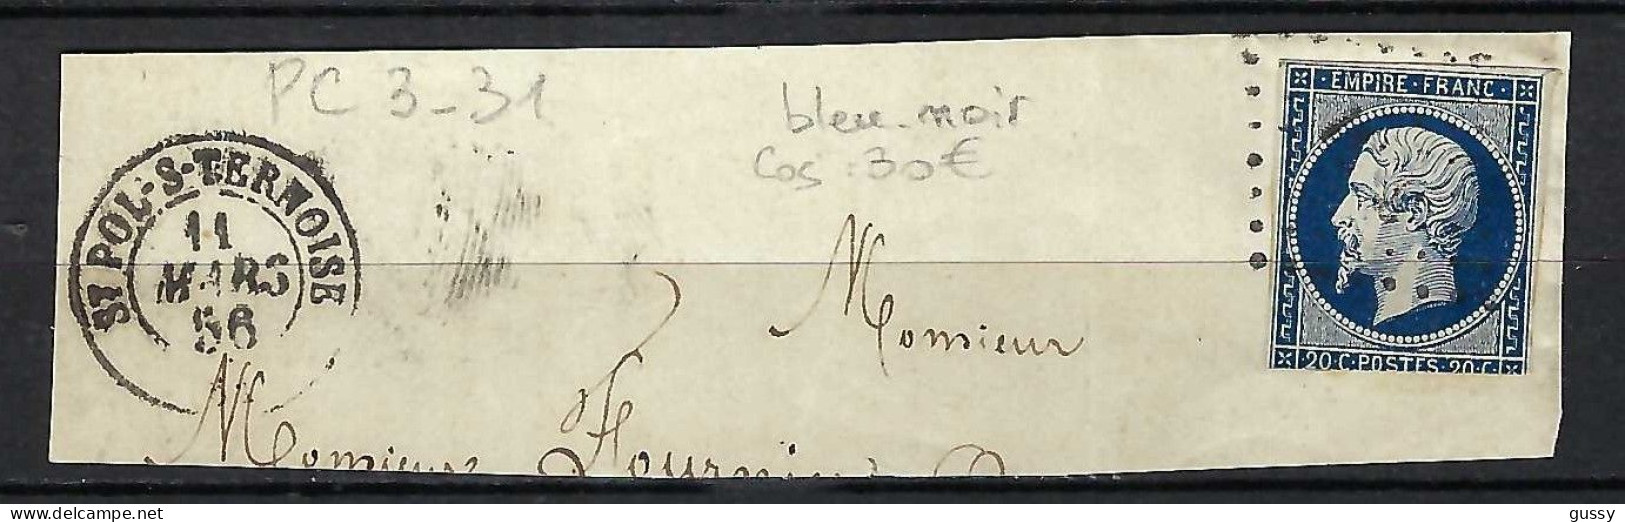 PC 3-31
bleu-noir
Cos : 30€
ST POL-S-TERNOISE
11
MARS
56
EMPIRE · FRANC ·
20 · C · POSTES · 20 · C ·
Monsieur
Monsieur Fournier
delcampe.net
gussy